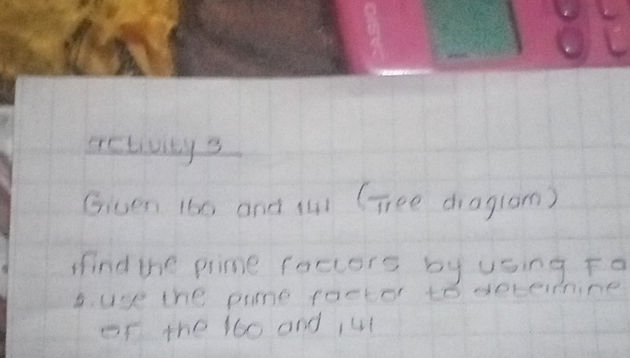 activity 3
Given 160 and 141 (Tree diagram)
find the prime factors by using Fa
use the prime factor to determine
of the 160 and 141
CASIO